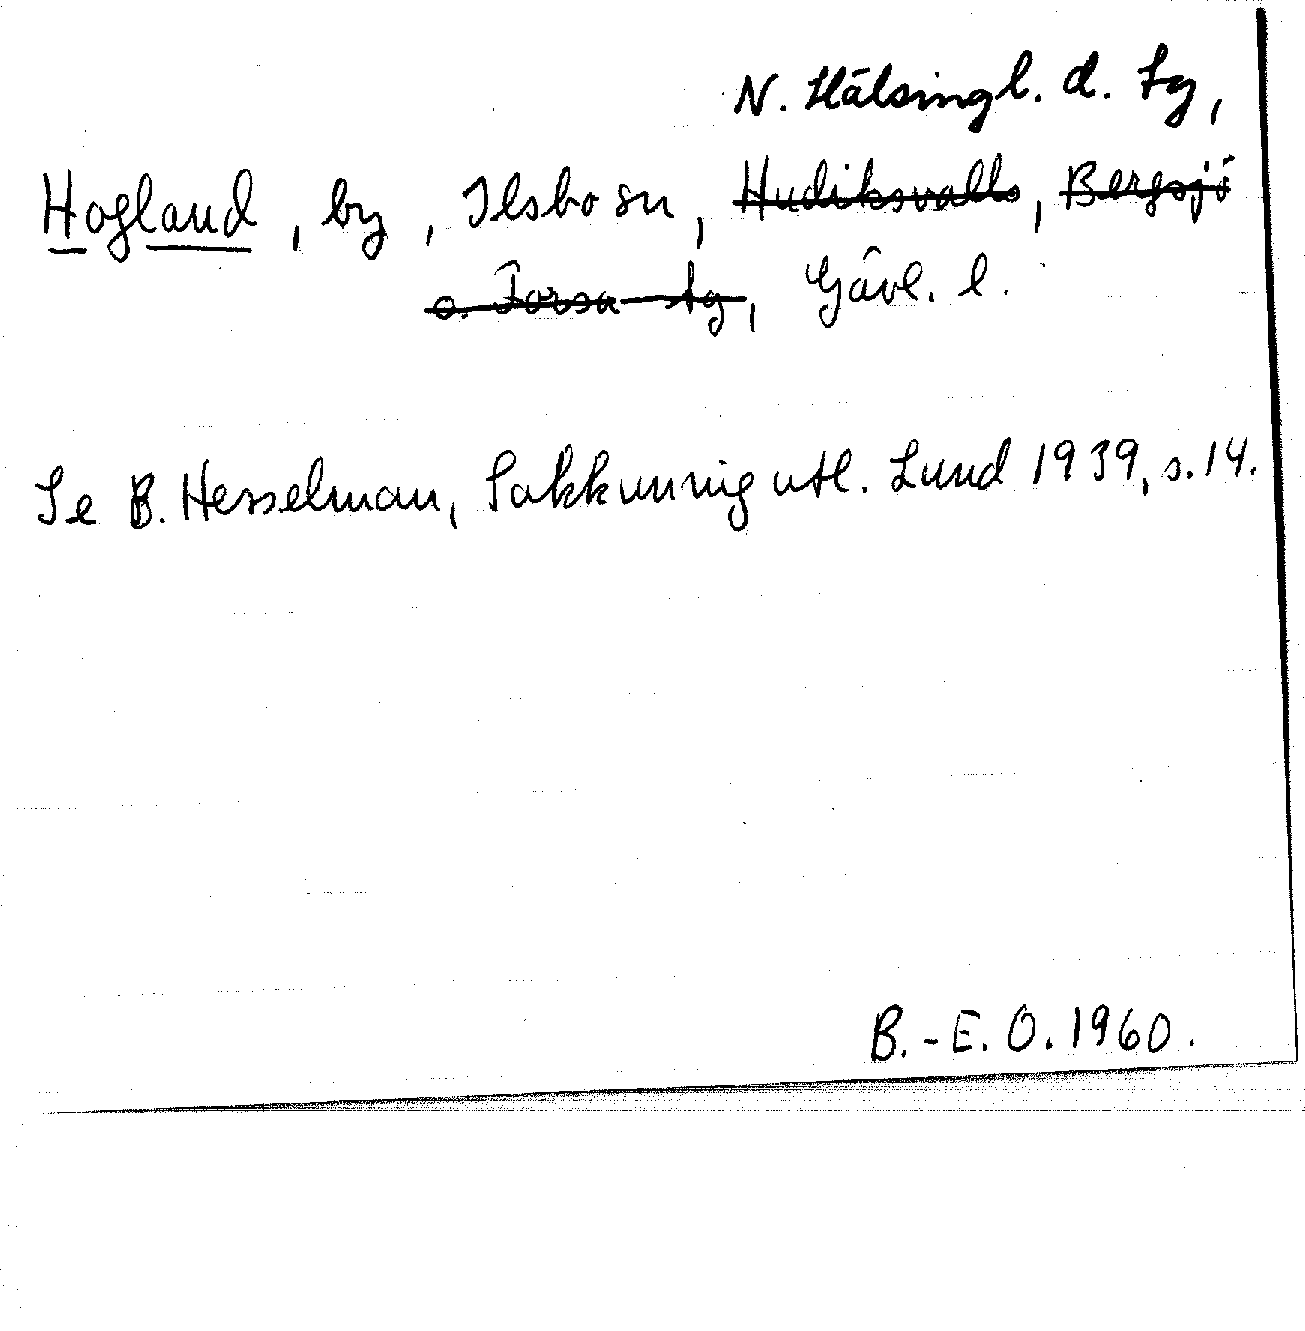 N. Hälsingl. d. tg,
Hogland, by, Ilsbo sn, Hudiksvalls, Bergsjö
o. Forsa tg, Gävl. l.
Se B. Hesselman, Sakkunnigutl. Lund 1939, s. 14.
B.-E. O. 1960.